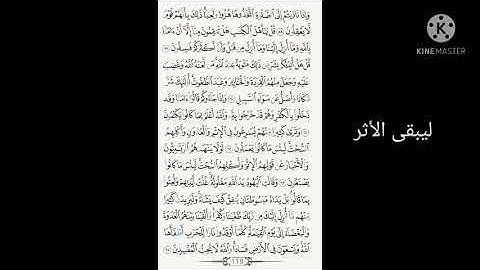 وَإِذَا نَادَيْتُمْ إِلَى ٱلصَّلَوٰةِ ٱتَّخَذُوهَا هُزُوًا وَلَعِبًا ذَٰلِكَ بِأَنَّهُمْ قَوْمٌ
لَّا يَعْقِلُونَ ٥٨ قُلْ يَٰٓأَهْلَ ٱلْكِتَٰبِ هَلْ تَنقِمُونَ مِنَّآ إِلَّآ أَنْ ءَامَنَّا
بِٱللَّهِ وَمَآ أُنزِلَ إِلَيْنَا وَمَآ أُنزِلَ مِن قَبْلُ وَأَنَّ أَكْثَرَكُمْ فَٰسِقُونَ ٥٩
قُلْ هَلْ أُنَبِّئُكُم بِشَرٍّ مِّن ذَٰلِكَ مَثُوبَةً عِندَ ٱللَّهِ مَن لَّعَنَهُ ٱللَّهُ وَغَضِبَ
عَلَيْهِ وَجَعَلَ مِنْهُمُ ٱلْقِرَدَةَ وَٱلْخَنَازِيرَ وَعَبَدَ ٱلطَّٰغُوتَ أُو۟لَٰٓئِكَ شَرٌّ
مَّكَانًا وَأَضَلُّ عَن سَوَآءِ ٱلسَّبِيلِ ٦٠ وَإِذَا جَآءُوكُمْ قَالُوٓا۟ ءَامَنَّا وَقَد
دَّخَلُوا۟ بِٱلْكُفْرِ وَهُمْ قَدْ خَرَجُوا۟ بِهِۦ وَٱللَّهُ أَعْلَمُ بِمَا كَانُوا۟ يَكْتُمُونَ
٦١ وَتَرَىٰ كَثِيرًا مِّنْهُمْ يُسَٰرِعُونَ فِى ٱلْإِثْمِ وَٱلْعُدْوَٰنِ وَأَكْلِهِمُ
ٱلسُّحْتَ لَبِئْسَ مَا كَانُوا۟ يَعْمَلُونَ ٦٢ لَوْلَا يَنْهَىٰهُمُ ٱلرَّبَّٰنِيُّونَ
وَٱلْأَحْبَارُ عَن قَوْلِهِمُ ٱلْإِثْمَ وَأَكْلِهِمُ ٱلسُّحْتَ لَبِئْسَ مَا كَانُوا۟
يَصْنَعُونَ ٦٣ وَقَالَتِ ٱلْيَهُودُ يَدُ ٱللَّهِ مَغْلُولَةٌ غُلَّتْ أَيْدِيهِمْ وَلُعِنُوا۟
بِمَا قَالُوا۟ بَلْ يَدَاهُ مَبْسُوطَتَانِ يُنفِقُ كَيْفَ يَشَآءُ وَلَيَزِيدَنَّ كَثِيرًا
مِّنْهُم مَّآ أُنزِلَ إِلَيْكَ مِن رَّبِّكَ طُغْيَٰنًا وَكُفْرًا وَأَلْقَيْنَا بَيْنَهُمُ ٱلْعَدَٰوَةَ
وَٱلْبَغْضَآءَ إِلَىٰ يَوْمِ ٱلْقِيَٰمَةِ كُلَّمَآ أَوْقَدُوا۟ نَارًا لِّلْحَرْبِ أَطْفَأَهَا
ٱللَّهُ وَيَسْعَوْنَ فِى ٱلْأَرْضِ فَسَادًا وَٱللَّهُ لَا يُحِبُّ ٱلْمُفْسِدِينَ ٦٤
118
KINEMASTER
ليبقى الأثر